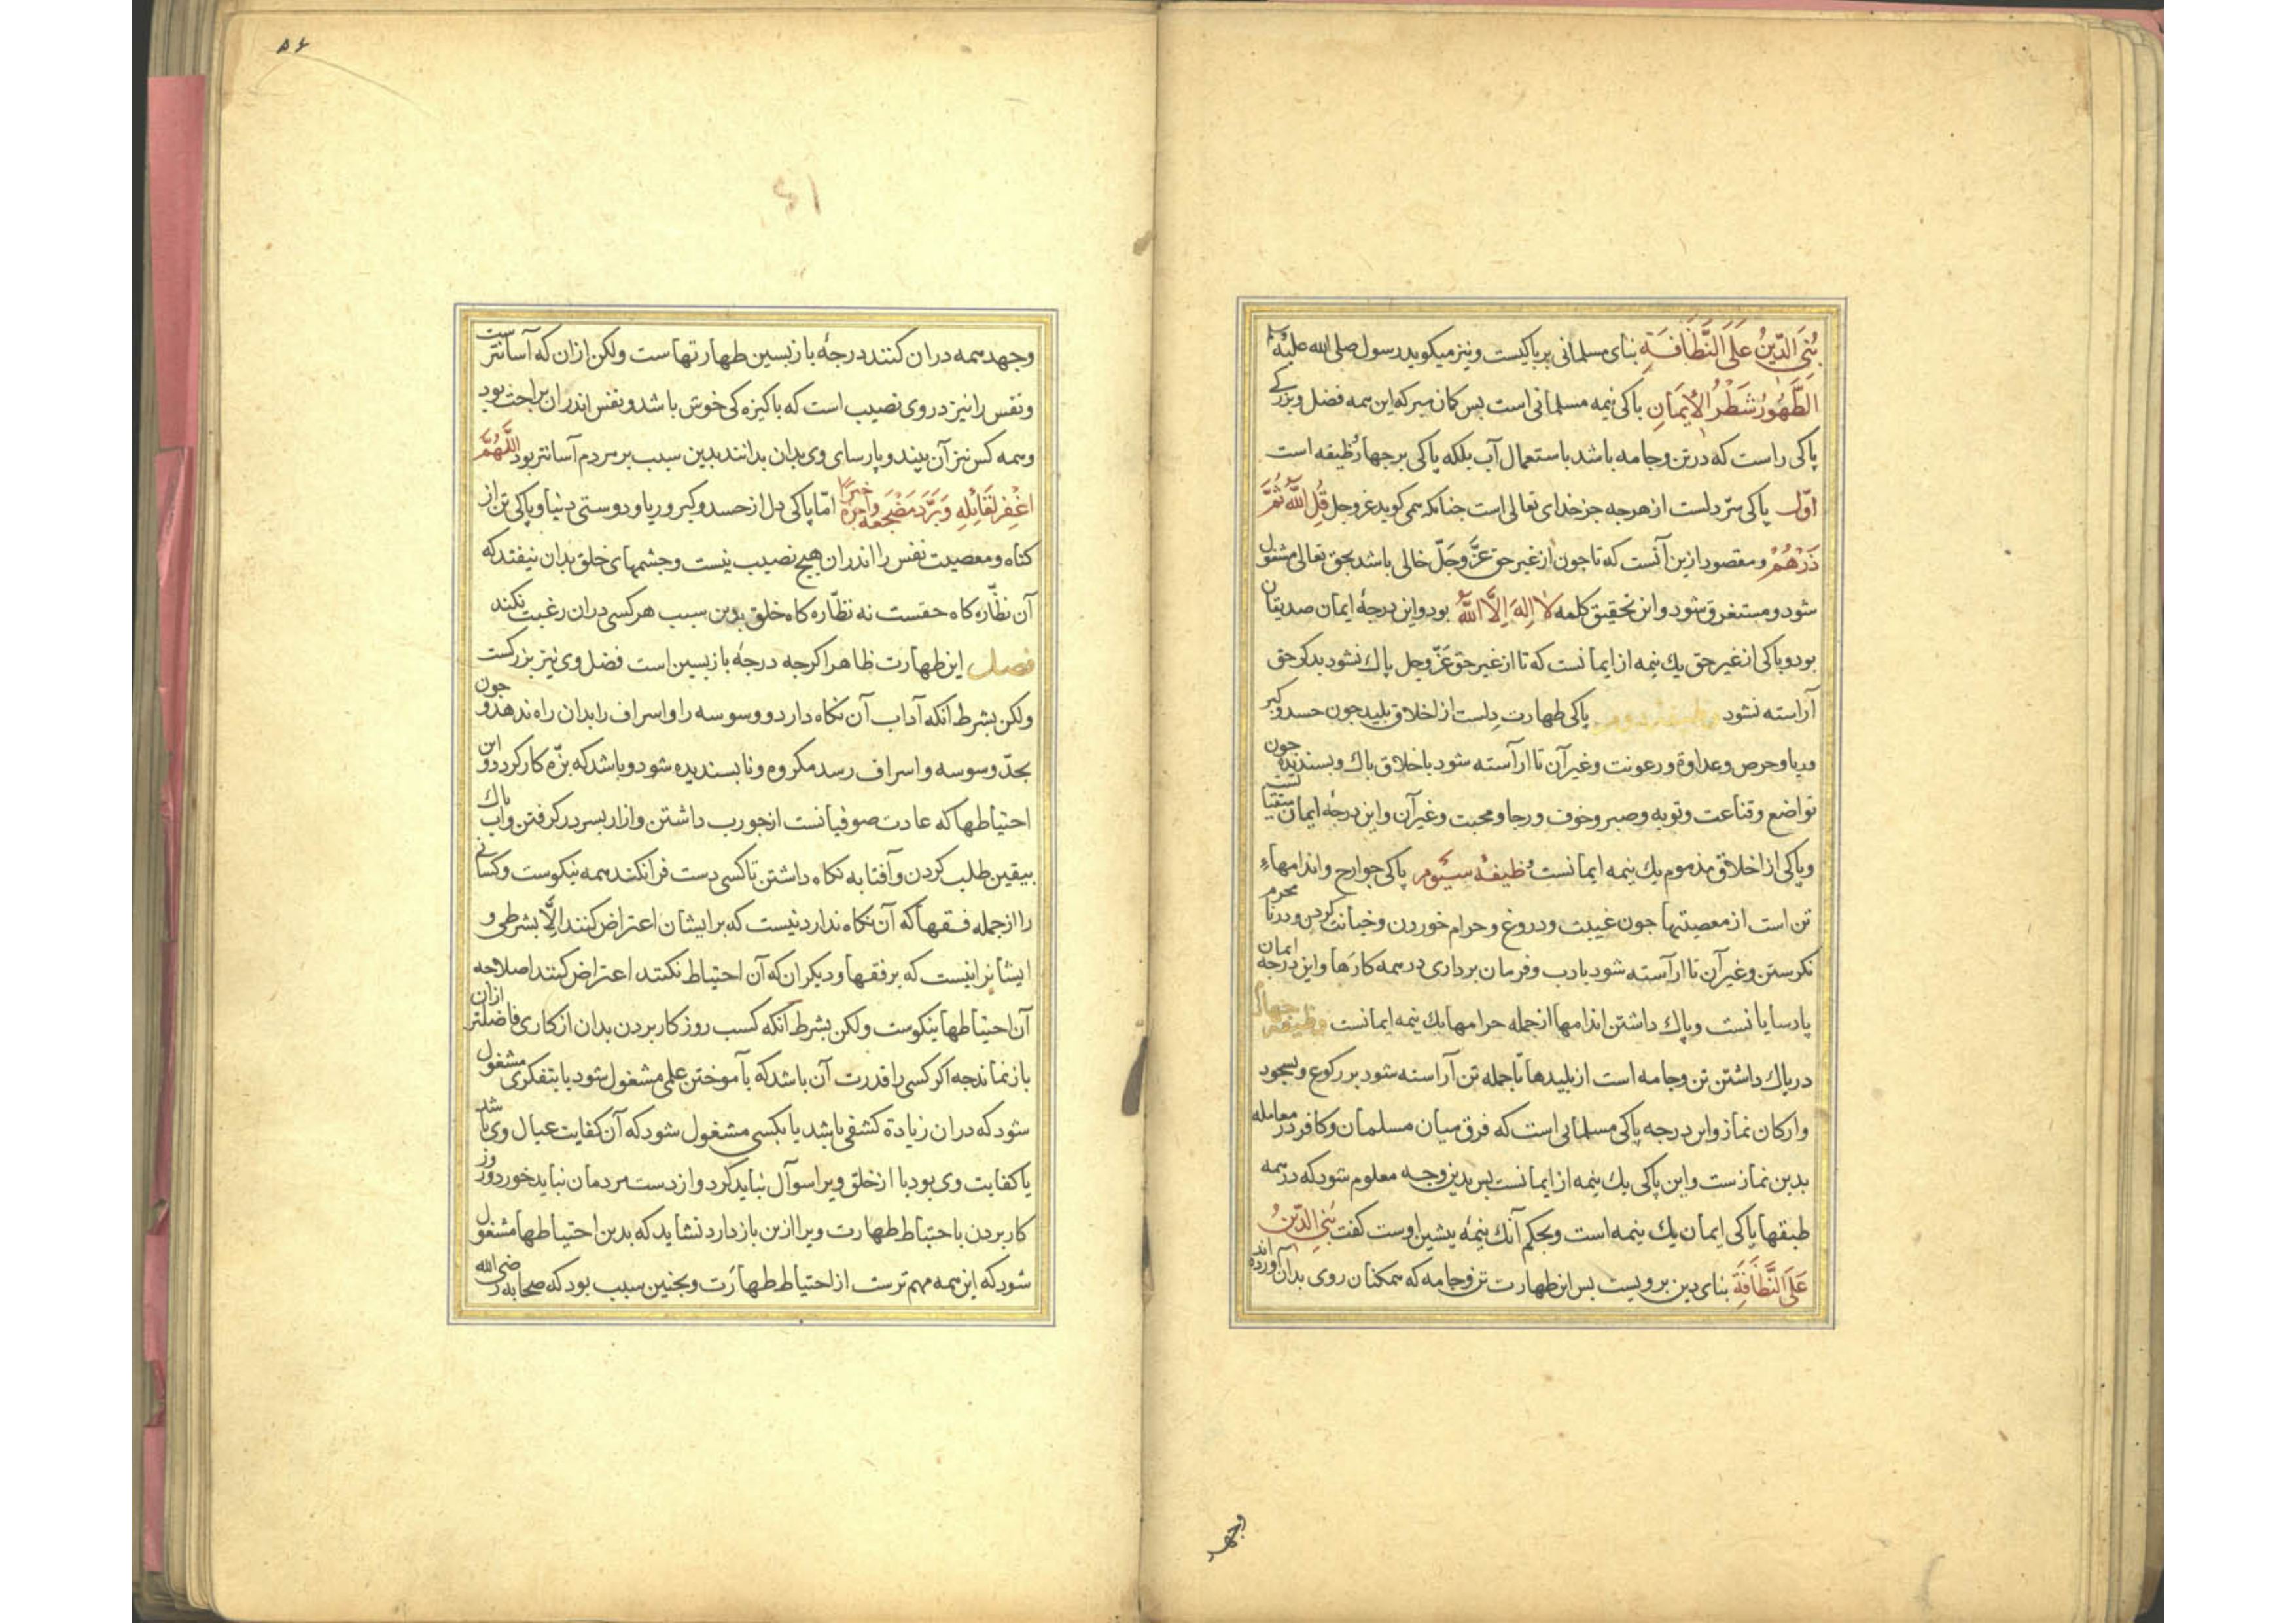 بُنِیَ الدّینُ عَلَی النَّظَافَةِ بنای مسلمانی بر پاکیست و نیز میکوید رسول صلی الله علیه وسلم
الطَّهُورُ شَطْرُ الْاِیمَانِ باکی نیمه مسلمانی است بس کمان مبر که این همه فضل و بزرکے
پاکی راست که در تن و جامه باشد باستعمال آب بلکه پاکی بر جهار وظیفه است
اوّل پاکی سرّ دلست از هرجه جز خدای تعالی است جنانکه همی کوید عز وجل قُلِ اللّٰهُ ثُمَّ
ذَرْهُمْ و مقصود ازین آنست که تا جون از غیر حق عَزَّ وَجَلّ خالی باشد بحق تعالی مشغول
شود و مستغرق شود و این تحقیق کلمه لَا اِلٰهَ اِلَّا اللّٰهُ بود و این درجهٔ ایمان صدیقان
بود و پاکی از غیر حق یك نیمه از ایمانست که تا از غیر حق عَزّ وجل پاك نشود بذکر حق
آراسته نشود وظیفهٔ دوم پاکی طهارت دلست از اخلاق بلید جون حسد و کبر
و ریا و حرص و عداوة و رعونت و غیر آن تا آراسته شود باخلاق باك و بسندیده جون
تواضع و قناعت و توبه و صبر و خوف و رجا و محبت و غیر آن و این درجهٔ ایمان متقیانست
و پاکی از اخلاق مذموم یك نیمه ایمانست وظیفهٔ سیّوم پاکی جوارح و اندامهاء
تن است از معصیتها جون غیبت و دروغ و حرام خوردن و خیانت کردن و در نا محرم
نکرستن و غیر آن تا آراسته شود بادب و فرمان برداری در همه کارها و این درجه ایمان
پارسایانست و پاك داشتن اندامها از جمله حرامها یك نیمه ایمانست وظیفه جهارم
در پاك داشتن تن و جامه است از بلیدها تا جمله تن آراسته شود بر رکوع و سجود
و ارکان نماز و این درجه پاکی مسلمانی است که فرق میان مسلمان و کافر در معامله
بدین نمازست و این پاکی یك نیمه از ایمانست بس بدین وجه معلوم شود که در همه
طبقها پاکی ایمان یك نیمه است و بحکم آنك نیمهٔ بیشین اوست کفت بُنِیَ الدّینُ
عَلَی النَّظَافَةِ بنای دین برویست بس این طهارت تن و جامه که همکنان روی بدان آورده اند
وجهد
۵۶
وجهد همه دران کنند درجهٔ بازبسین طهارتهاست ولکن ازان که آسانترست
و نفس را نیز در وی نصیب است که باکیزه کی خوش باشد و نفس اندران براحت بود
و همه کس نیز آن بیند و پارسای وی بدان بدانند بدین سبب بر مردم آسانتر بود اللّٰهُمَّ
اغْفِر لقَائِلِهِ وَبَرِّدْ مَضْجَعَهُ امّا پاکی دل از حسد و کبر و ریا و دوستی دنیا و پاکی تن از
کناه و معصیت نفس را اندران هیج نصیب نیست و جشمهای خلق بدان نیفتد که
آن نظّاره کاه حقست نه نظّاره کاه خلق بدین سبب هر کسی دران رغبت نکند
فصل این طهارت ظاهر اکرجه درجهٔ بازبسین است فضل وی نیز بزرکست
ولکن بشرط انکه آداب آن نکاه دارد و وسوسه را و اسراف را بدان راه ندهد و جون
بحدّ وسوسه و اسراف رسد مکروه و نابسندیده شود و باشد که بزه کار کردد و این
احتیاطها که عادت صوفیانست از جورب داشتن و ازار بسر در کرفتن و آب پاك
بیقین طلب کردن و آفتابه نکاه داشتن تا کسی دست فرا نکند همه نیکوست و کسانی
را از جمله فقها که آن نکاه ندارد نیست که بر ایشان اعتراض کنند اِلّا بشرطی و
ایشانرا نیست که بر فقها و دیکران که آن احتیاط نکنند اعتراض کنند اصلا جه
آن احتیاطها نیکوست ولکن بشرط انکه کسب روز کار بردن بدان از کاری فاضلتر ازان
باز نماند جه اکر کسی را قدرت آن باشد که بآموختن علمی مشغول شود یا بتفکری مشغول
شود که دران زیادة کشفی باشد یا بکسبی مشغول شود که آن کفایت عیال وی باشد
یا کفایت وی بود تا از خلق ویرا سوآل نباید کرد و از دست مردمان نباید خورد و روز
کار بردن باحتیاط طهارت ویرا ازین باز دارد نشاید که بدین احتیاطها مشغول
شود که این همه مهم ترست از احتیاط طهارت و بجنین سبب بود که صحابه رضی الله